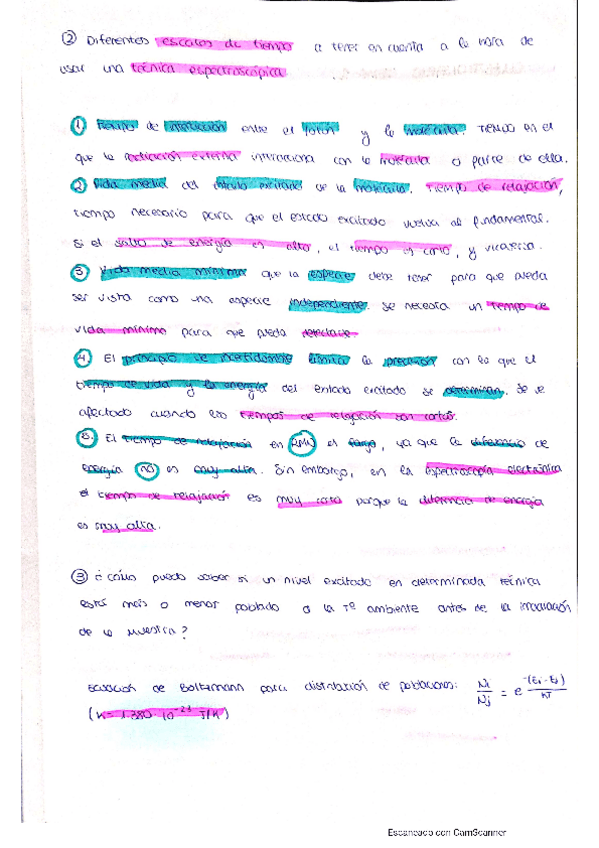 ② Diferentes escalas de tiempo a tener en cuenta a la hora de
usar una técnica espectroscópica
① Tiempo de interacción entre el fotón y la molécula. Tiempo en el
que la radiación externa interacciona con la molécula o parte de ella.
② Vida media del estado excitado de la molécula. Tiempo de relajación,
tiempo necesario para que el estado excitado vuelva al fundamental.
Si el salto de energía es alto, el tiempo es corto, y viceversa.
③ Vida media mínima que la especie debe tener para que pueda
ser vista como una especie independiente. Se necesita un tiempo de
vida mínimo para que pueda detectarse.
④ El principio de incertidumbre limita la precisión con la que el
tiempo de vida y la energía del estado excitado se determinan. Se ve
afectado cuando los tiempos de relajación son cortos.
5. El tiempo de relajación en RMN es largo, ya que la diferencia de
energía no es muy alta. Sin embargo, en la espectroscopía electrónica
el tiempo de relajación es muy corto porque la diferencia de energía
es muy alta.
③ ¿Cómo puedo saber si un nivel excitado en determinada técnica
está más o menos poblado a la Tª ambiente antes de la irradiación
de la muestra?
Ecuación de Boltzmann para distribución de poblaciones: Ni/Nj = e^(-(Ei-Ej)/KT)
(K = 1.380·10^-23 J/K)
Escaneado con CamScanner